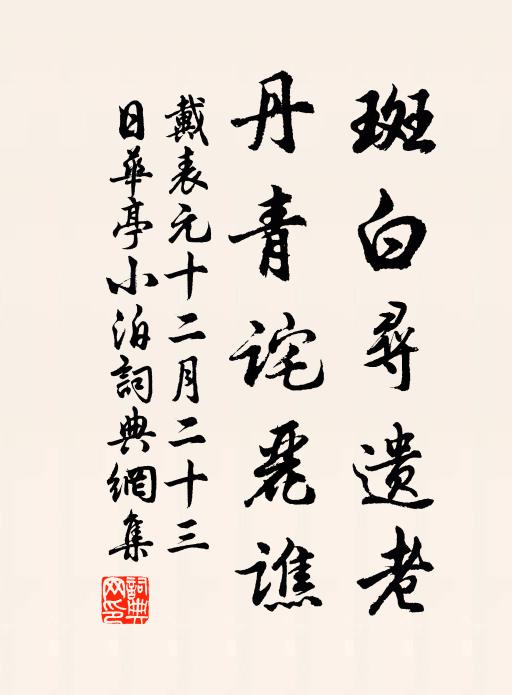 斑白尋遺老
丹青詫麗譙
戴表元十二月二十三
日華亭小泊詞典網集
詞典
网印